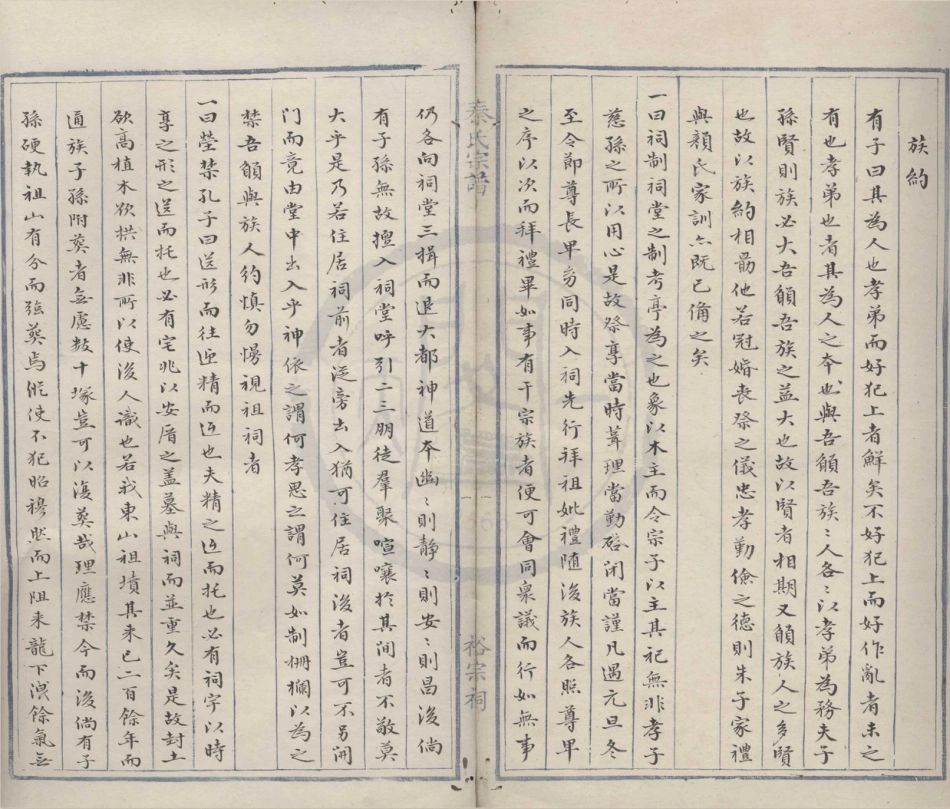 族約
有子曰其為人也孝弟而好犯上者鮮矣不好犯上而好作亂者未之
有也孝弟也者其為人之本也與吾願吾族〻人各〻以孝弟為務夫子
孫賢則族必大吾願吾族之益大也故以賢者相期又願族人之多賢
也故以族約相勗他若冠婚喪祭之儀忠孝勤儉之德則朱子家禮
與顏氏家訓亦既已備之矣
一曰祠制祠堂之制考亭為之也象以木主而令宗子以主其祀無非孝子
慈孫之所以用心是故祭享當時葺理當勤啟閉當謹凡遇元旦冬
至令節尊長卑幼同時入祠先行拜祖妣禮随後族人各照尊卑
之序以次而拜禮畢如事有干宗族者便可會同衆議而行如無事
秦氏宗譜
一
裕宗祠
仍各向祠堂三揖而退大都神道本幽〻則靜〻則安〻則昌後倘
有子孫無故擅入祠堂呼引二三朋徒羣聚喧嚷於其間者不敬莫
大乎是乃若住居祠前者從旁出入猶可住居祠後者豈可不另開
門而竟由堂中出入乎神依之謂何孝思之謂何莫如制柵欄以為之
禁吾願與族人約慎勿慢視祖祠者
一曰塋禁孔子曰送形而往迎精而返也夫精之返而托也必有祠宇以時
享之形之送而托也必有宅兆以安厝之盖墓與祠而並重久矣是故封土
欲高植木欲拱無非所以使後人識也若我東山祖墳其来已二百餘年而
通族子孫附葬者無慮数十塚豈可以復葬哉理應禁今而後倘有子
孫硬執祖山有分而強葬焉縱使不犯昭穆然而上阻来龍下洩餘氣無